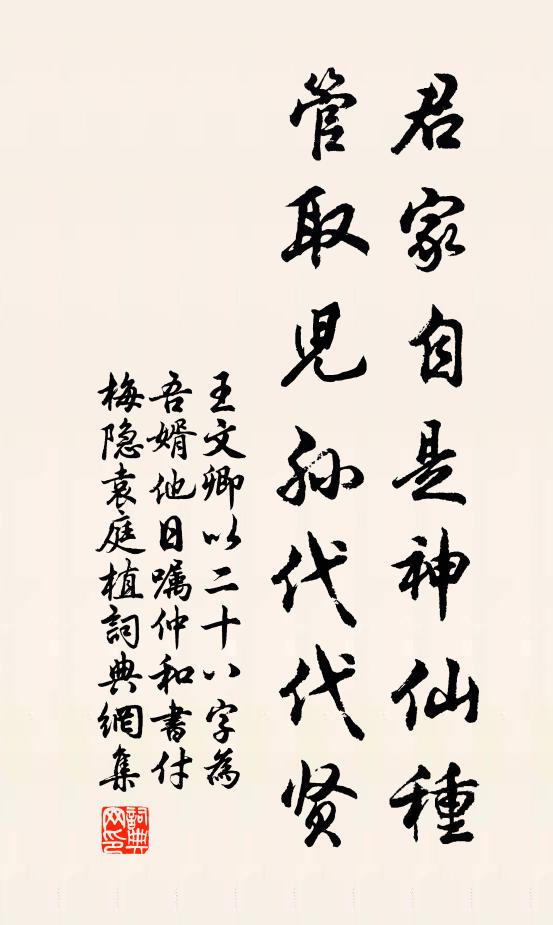 君家自是神仙種
管取児孙代代贤
王文卿以二十八字為
吾婿他日嘱仲和書付
梅隐袁庭植詞典網集
詞典网印